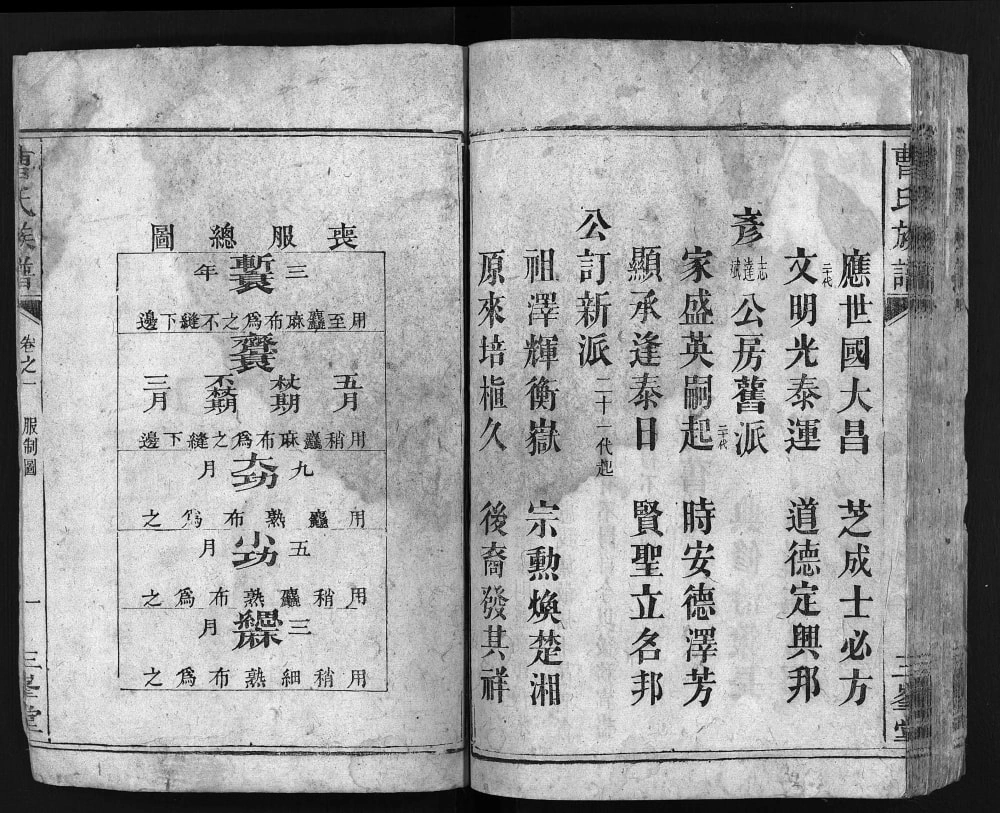 曹氏族譜
三峯堂
應世國大昌　芝成士必方
文明光泰運　道德定興邦
彥志達斌公房舊派
家盛英嗣起　時安德澤芳
顯承逢泰日　賢聖立名邦
公訂新派二十一代起
祖澤輝衡嶽　宗勳煥楚湘
原來培植久　後裔發其祥
喪服總圖
三年
斬衰
用至麤麻布為之不縫下邊
齊衰
五月　杖期　不杖期　三月
用稍麤麻布為之縫下邊
大功
九月
用麤熟布為之
小功
五月
用稍麤熟布為之
緦麻
三月
用稍細熟布為之
曹氏族譜
卷之一
服制圖
一
三峯堂